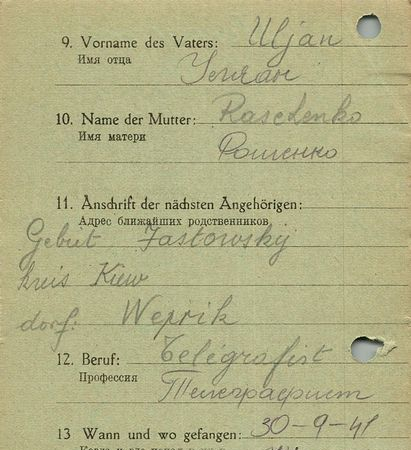 9. Vorname des Vaters: Uljan
Имя отца
10. Name der Mutter: Raschenko
Имя матери
Рашенко
11. Anschrift der nächsten Angehörigen:
Адрес ближайших родственников
Gebiet Fastowsky
kreis Kiew
dorf: Weprik
12. Beruf: Telegrafist
Профессия
Телеграфист
13 Wann und wo gefangen: 30-9-41